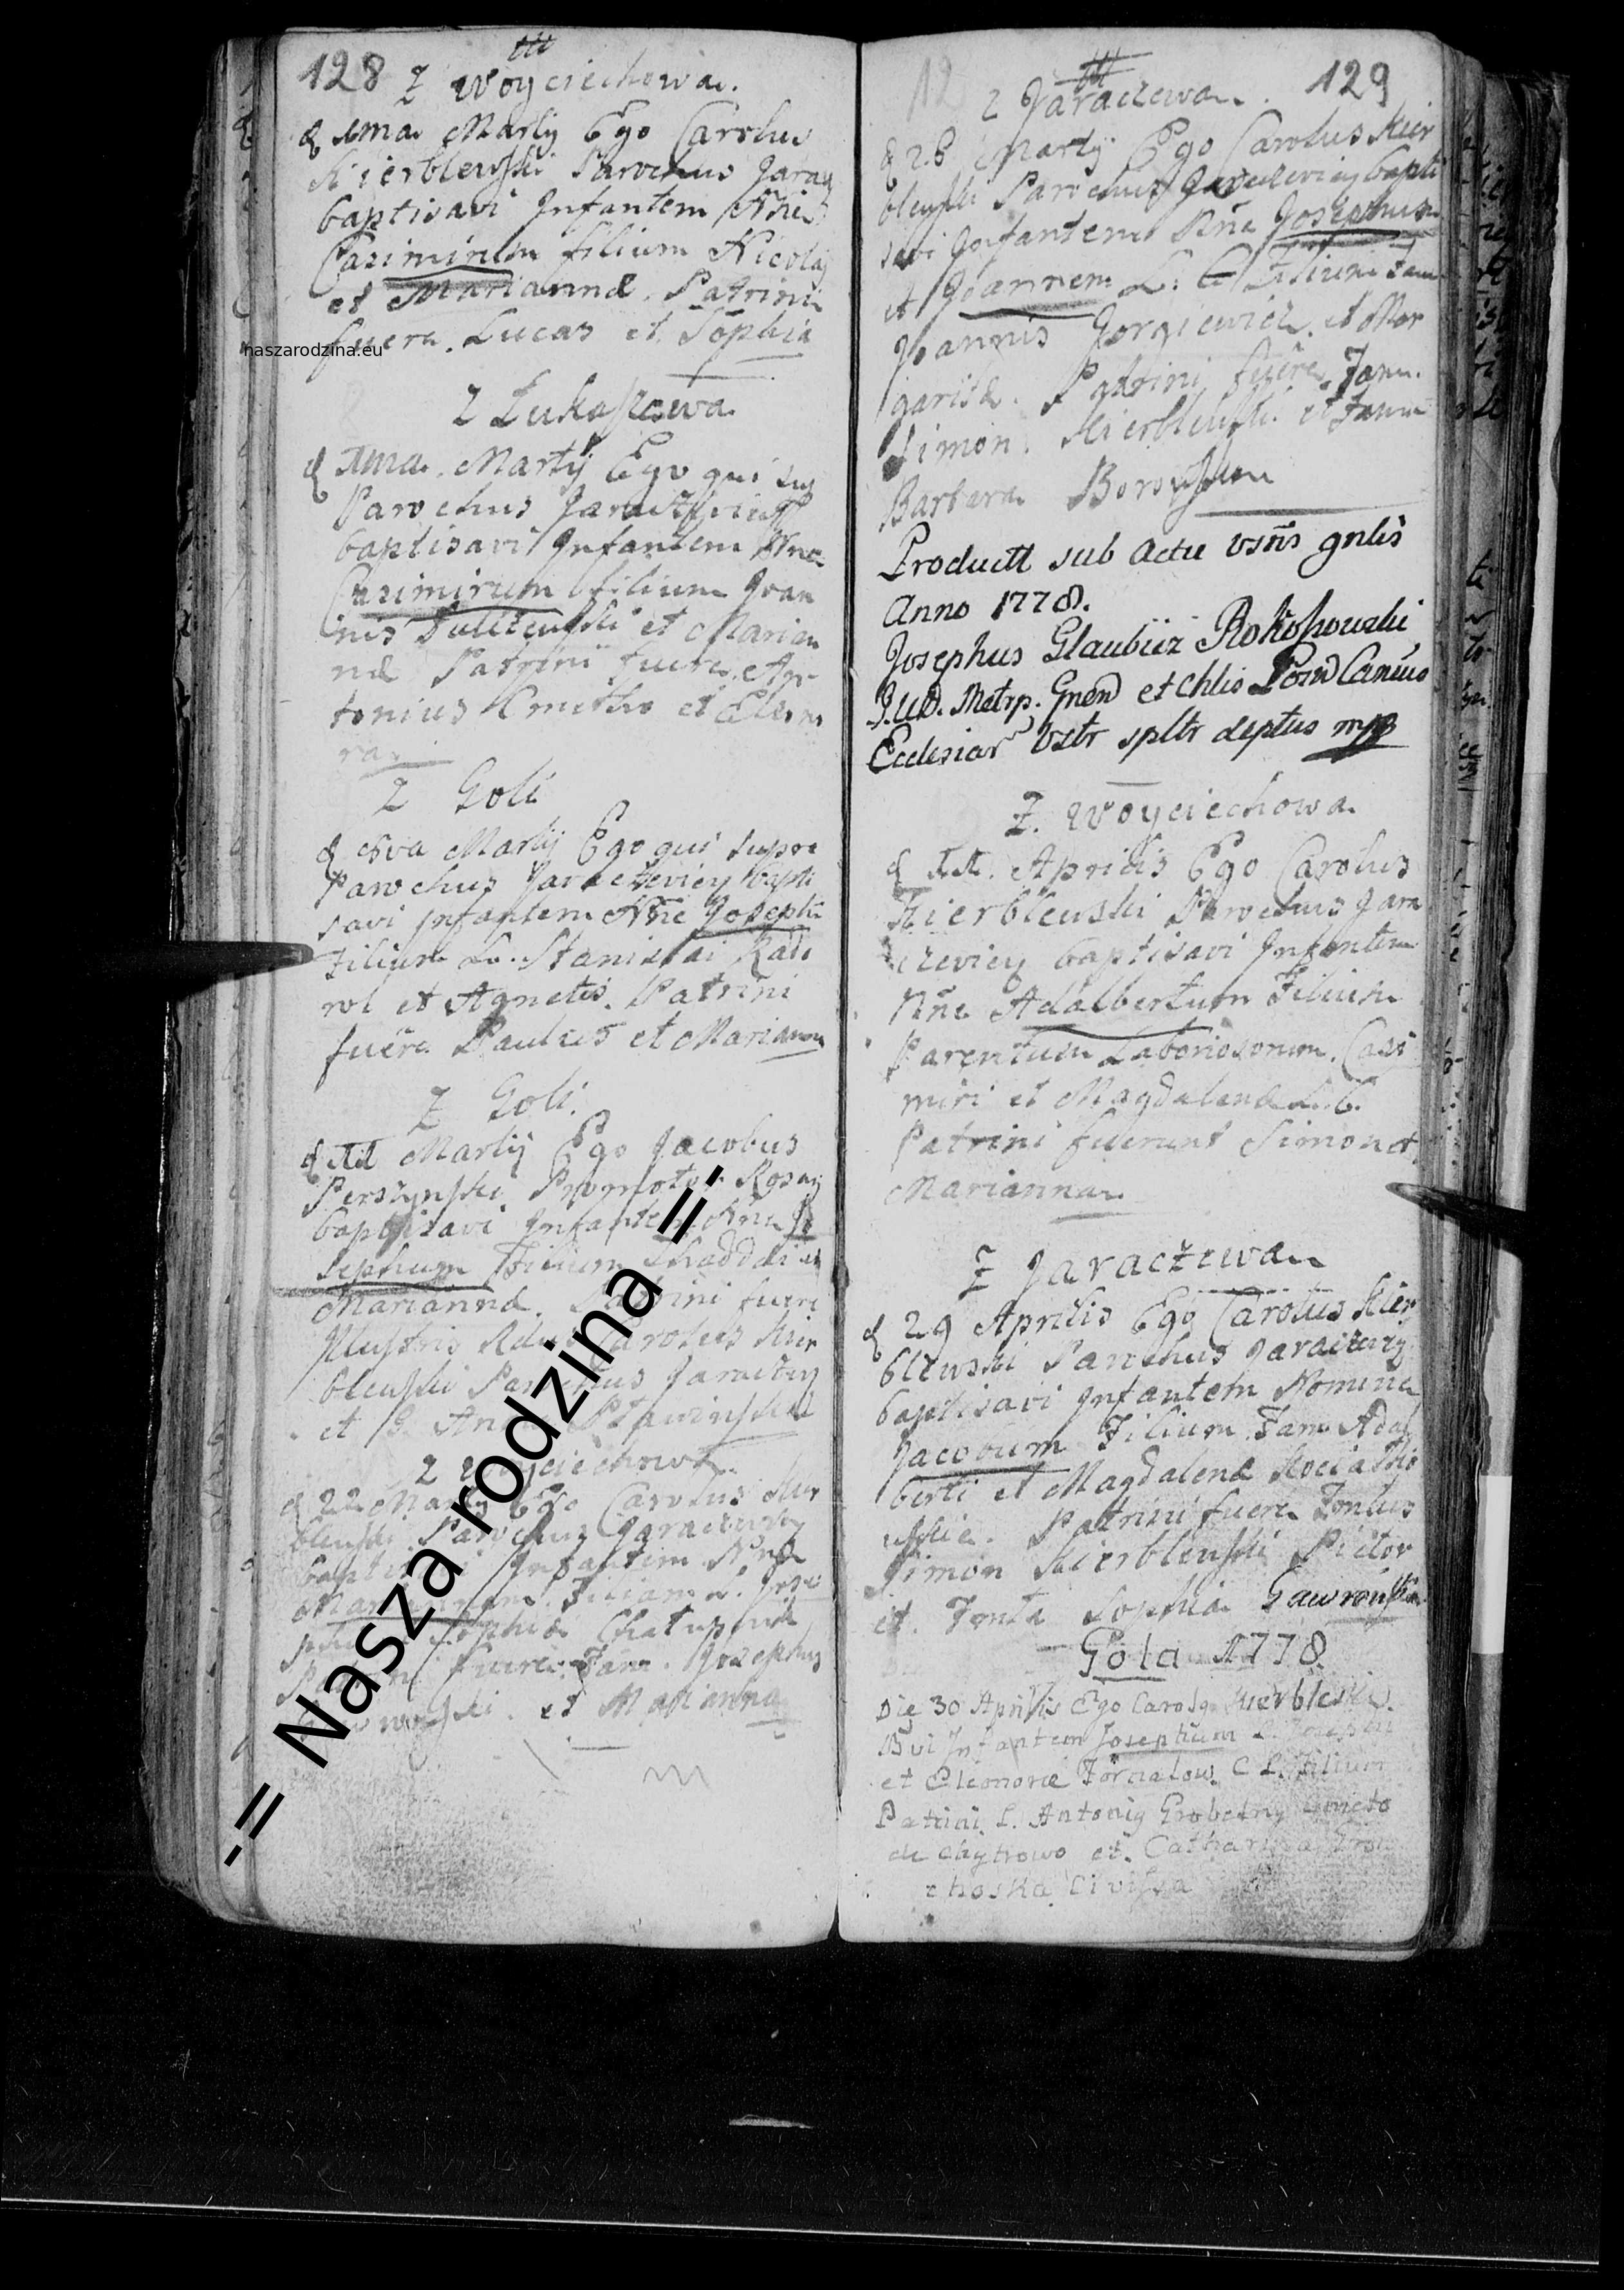 128
Z Woyciechowa.
d 1ma Martij Ego Carolus
Kierblewski Parochus Jarac
baptisavi Infantem Nñe
Casimirum filium Nicolaj
et Mariannæ. Patrini
fuere. Lucas et Sophia
naszarodzina.eu
Z Łukaszewa
d 1ma. Martij Ego qui sup
Parochus Jaraczeviey
baptisavi Infantem Nne
Casimirum filium Joan
nis et Marian
næ Patrini fuere. An
tonius Cmetho et Eleono
ra.
Z Goli
d 8va Martij Ego qui supra
Parochus Jaraczeviey bapti
savi Infantem Nñe Josephũ
Filium L. Stanislai Kado
rol et Agnetis. Patrini
fuere Paulus et Marianna
Z Goli.
d Martij Ego Jacobus
Perszynski Promotor Rosarij
baptisavi Infantem Nne Jo
sephum Filium Thaddæi et
Mariannæ. Patrini fuere
Illustris Rdus Carolus Kier
blewski Parochus Jaraczey
et G. Anna
Z Woyciechowa
d 22 Martij Ego Carolus Kier
blewski Parochus Jaraczeviey
baptisavi Infantem Nne
Filiam L. Jose
phi et Sophiæ
Patrini fuere. Fam. Josephus
et Marianna
-= Nasza rodzina =-
129
12
Z Jaraczewa.
d 26 Martij Ego Carolus Kier
blewski Parochus Jaraczeviey bapti
savi Infantem Nñe Josephum
et Joannem L. C. Filium Fam
Joannis Gorgiewicz. et Mar
garitæ. Patrini fuere. Fam.
Simon. Kierblewski. et Fam
Barbara
Productt sub actu vsñs gnlis
Anno 1778.
Josephus Glaubicz Rokossowski
J.U.D. Metrp. Gnen et Chlis Posn Cancus
Ecclesiar Vstr spltr deptus mpp
Z. Woyciechowa.
d 11. Aprilis Ego Carolus
Kierblewski Parochus Jara
czeviey baptisavi Infantem
Nñe Adalbertum Filium
Parentum Laboriosorum. Casi
miri et Magdalenæ L. C.
Patrini fuerunt Simon et
Marianna.
Z Jaraczewa
d 29 Aprilis Ego Carolus Kier
blewski Parochus Jaraczeviey
baptisavi Infantem Nomine
Jacobum Filium Fam Adal
berti et Magdalenæ
Patrini fuere Fontus
Simon Kierblewski Pictor
et. Fonta Sophia Gawronska
Gola 1778
Die 30 Aprilis Ego Carolus Kierbleski
Bvi Infantem Josephum L. Josephi
et Eleonoræ C L. Filium
Patrini L. Antonig Grobelny Cmeto
de Chytrowo et. Catharina
Civissa